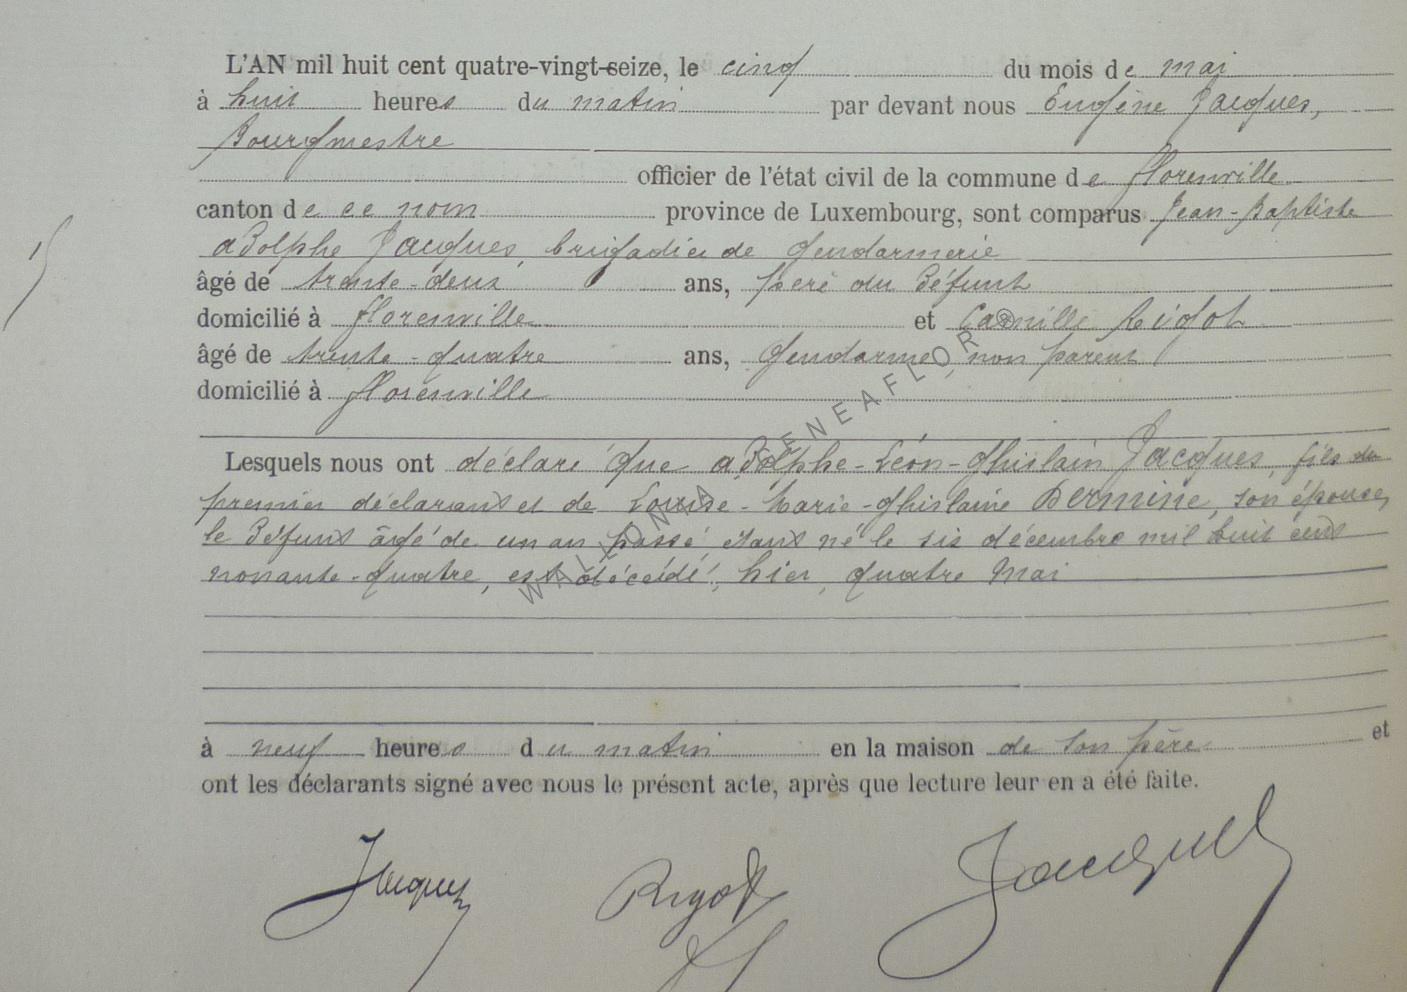 L'AN mil huit cent quatre-vingt-seize, le cinq du mois de mai
à huit heures du matin par devant nous Eugène Jacques,
Bourgmestre
officier de l'état civil de la commune de Florenville
canton de ce nom province de Luxembourg, sont comparus Jean-Baptiste
Adolphe Jacques, brigadier de gendarmerie
âgé de trente-deux ans, père du défunt
domicilié à Florenville et Camille Rigot
âgé de trente-quatre ans, gendarme, non parent
domicilié à Florenville
Lesquels nous ont déclaré que Adolphe-Léon-Ghislain Jacques, fils du
premier déclarant et de Louise-Marie-Ghislaine Dermine, son épouse,
le défunt âgé de un an passé, étant né le six décembre mil huit cent
nonante-quatre, est décédé, hier, quatre mai
à neuf heures du matin en la maison de son père et
ont les déclarants signé avec nous le présent acte, après que lecture leur en a été faite.
Jacques Rigot Jacques
WALLONIA GENEAFLOR ®
15